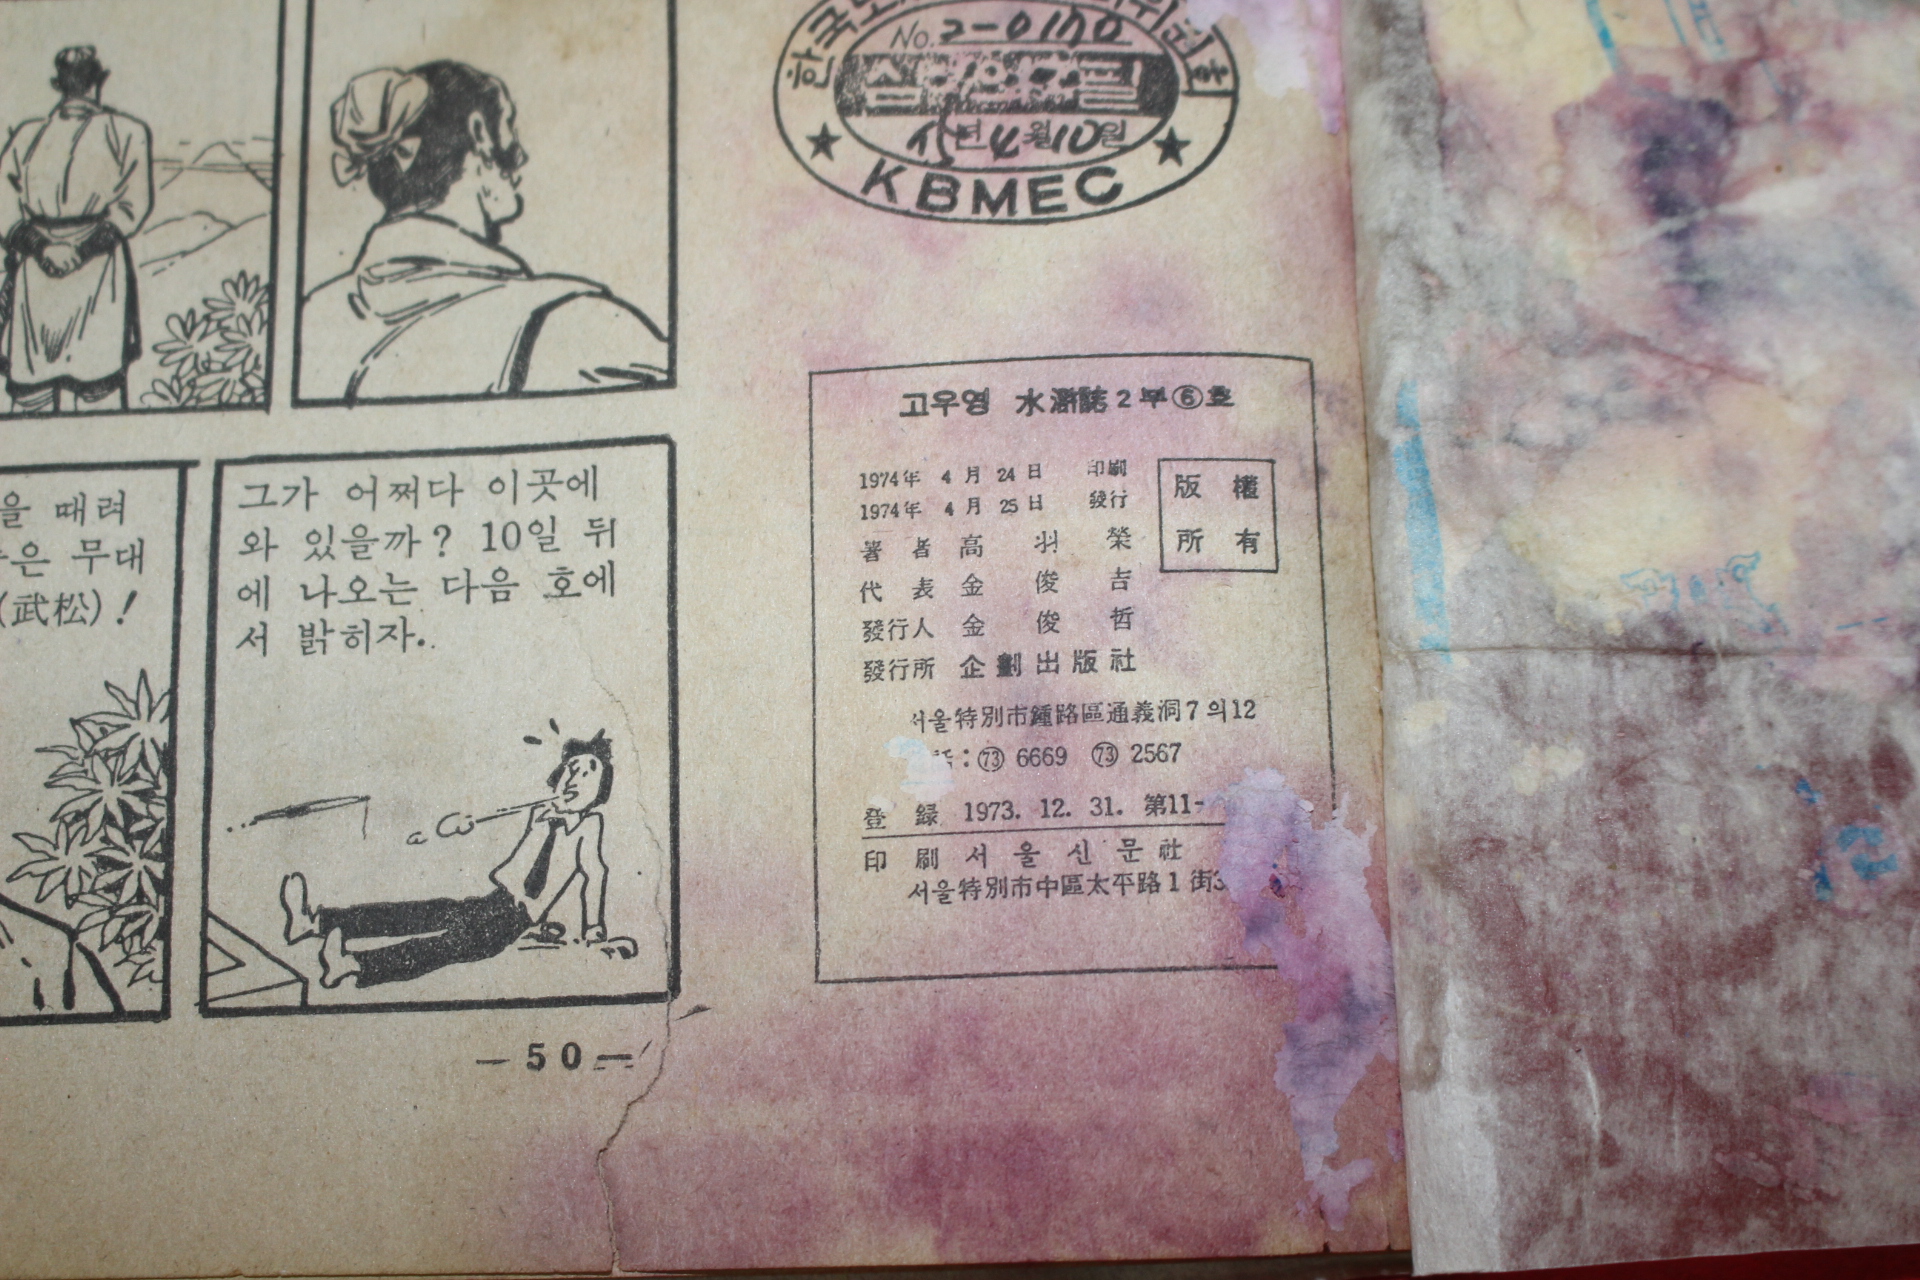 No. 2-0170
년 4월 10일
KBMEC
을 때려
은 무대
(武松)!
그가 어쩌다 이곳에
와 있을까? 10일 뒤
에 나오는 다음 호에
서 밝히자.
-50-
고우영 水滸誌 2부 ⑥호
1974年 4月 24日 印刷
1974年 4月 25日 發行
版權
所有
著者 高羽榮
代表 金俊吉
發行人 金俊哲
發行所 企劃出版社
서울特別市鍾路區通義洞7의12
: ㉳ 6669 ㉳ 2567
登錄 1973. 12. 31. 第11-
印刷 서울신문社
서울特別市中區太平路1街3